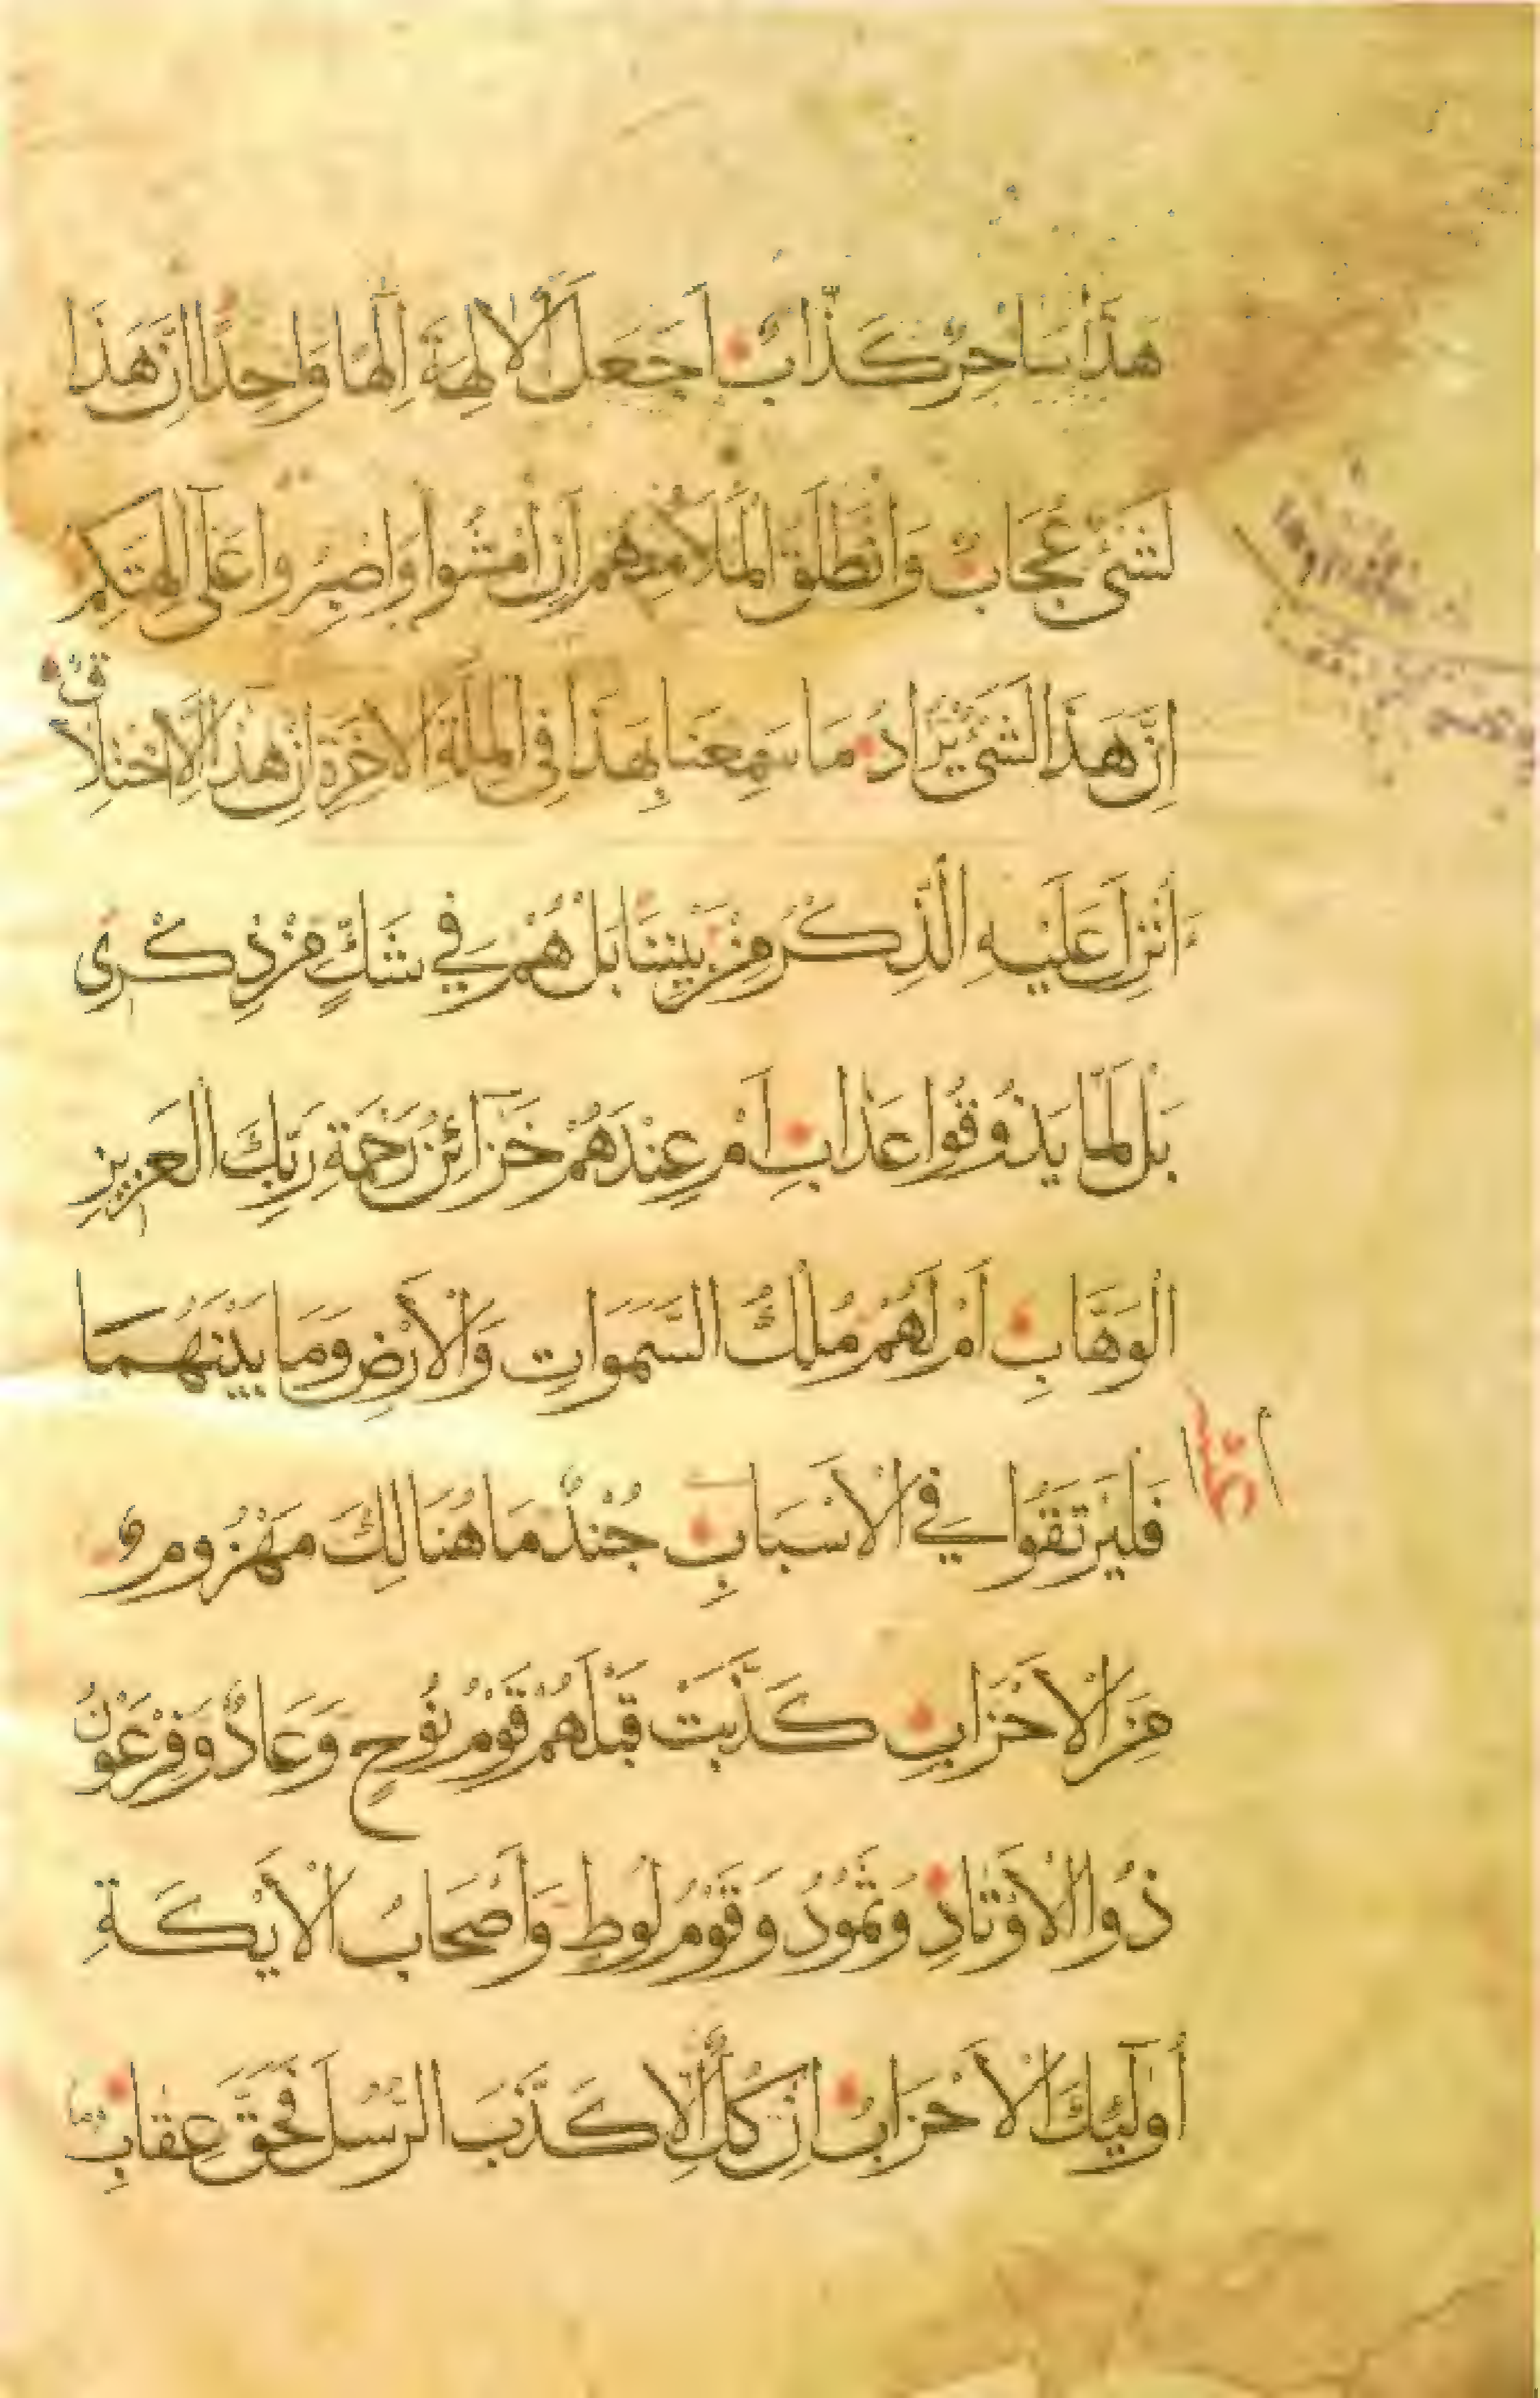 هَذَا سَاحِرٌ كَذَّابٌ اَجَعَلَ الْاٰلِهَةَ اِلٰهًا وَاحِدًا اِنَّ هَذَا
لَشَىْءٌ عُجَابٌ وَانْطَلَقَ الْمَلَاُ مِنْهُمْ اَنِ امْشُوا وَاصْبِرُوا عَلٰى اٰلِهَتِكُمْ
اِنَّ هَذَا لَشَىْءٌ يُرَادُ مَا سَمِعْنَا بِهَذَا فِى الْمِلَّةِ الْاٰخِرَةِ اِنْ هَذَا اِلَّا اخْتِلَاقٌ
ءَاُنْزِلَ عَلَيْهِ الذِّكْرُ مِنْ بَيْنِنَا بَلْ هُمْ فِي شَكٍّ مِنْ ذِكْرِى
بَلْ لَمَّا يَذُوقُوا عَذَابِ اَمْ عِنْدَهُمْ خَزَآئِنُ رَحْمَةِ رَبِّكَ الْعَزِيزِ
الْوَهَّابِ اَمْ لَهُمْ مُلْكُ السَّمَوَاتِ وَالْاَرْضِ وَمَا بَيْنَهُمَا
فَلْيَرْتَقُوا فِي الْاَسْبَابِ جُنْدٌ مَا هُنَالِكَ مَهْزُومٌ
مِنَ الْاَحْزَابِ كَذَّبَتْ قَبْلَهُمْ قَوْمُ نُوحٍ وَعَادٌ وَفِرْعَوْنُ
ذُوا الْاَوْتَادِ وَثَمُودُ وَقَوْمُ لُوطٍ وَاَصْحَابُ الْاَيْكَةِ
أُولٰٓئِكَ الْاَحْزَابُ اِنْ كُلٌّ اِلَّا كَذَّبَ الرُّسُلَ فَحَقَّ عِقَابِ